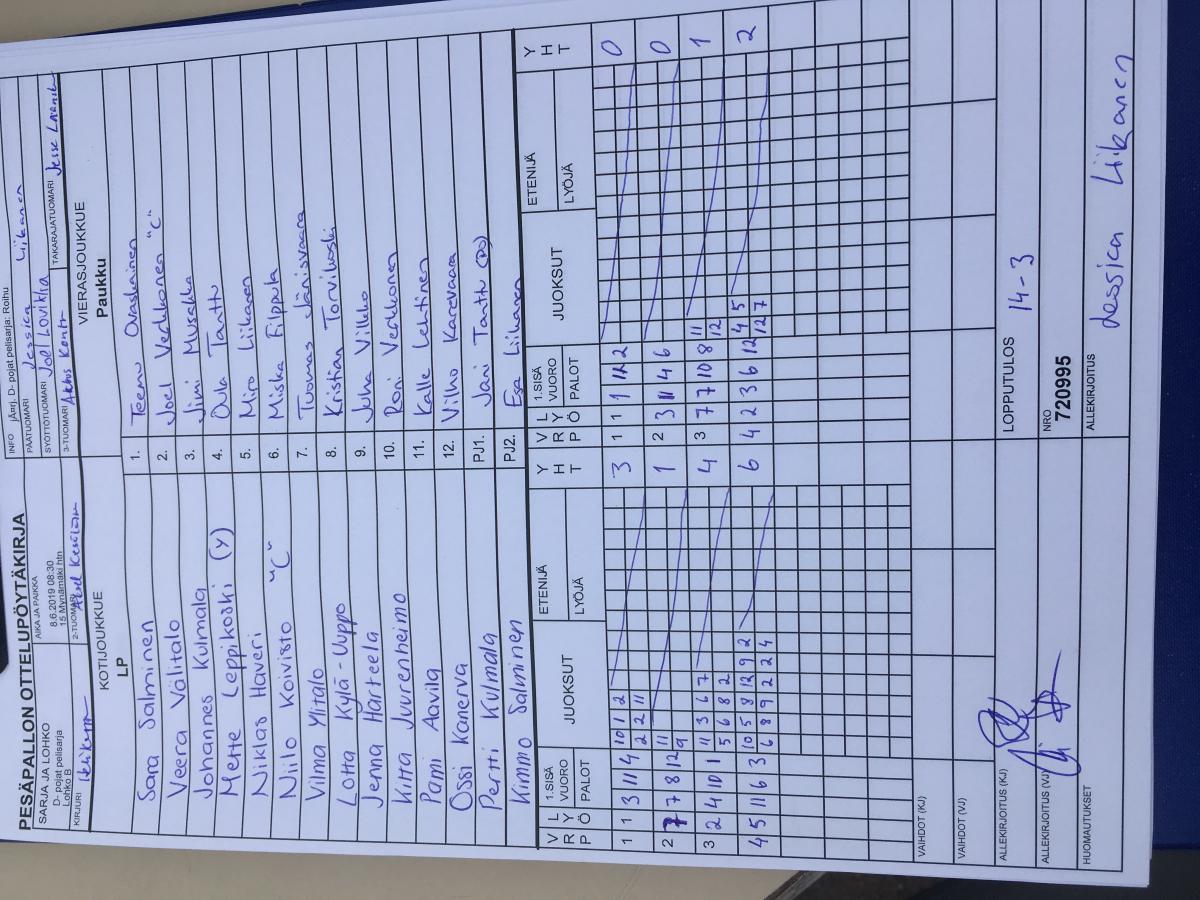 PESÄPALLON OTTELUPÖYTÄKIRJA
SARJA JA LOHKO
D- pojat pelisarja
Lohko B
AIKA JA PAIKKA
8.6.2019 08:30
15 Mynämäki htn
INFO
järj. D- pojat pelisarja: Roihu
PÄÄTUOMARI Jessica Liikanen
SYÖTTÖTUOMARI Joel Lovikka
KIRJURI
2-TUOMARI
3-TUOMARI
TAKARAJATUOMARI Jesse
KOTIJOUKKUE
LP
VIERASJOUKKUE
Paukku
Sara Salminen 1. Teemu Ovaskainen
Veera Välitalo 2. Joel Verkkonen "C"
Johannes Kulmala 3. Jimi Musakka
Mette Leppikoski (Y) 4. Ova Tanttu
Niklas Haveri 5. Miro Liikanen
Niilo Koivisto "C" 6. Miska Filppula
Vilma Ylitalo 7. Tuomas Jänisvaara
Lotta Kylä-Uuppo 8. Kristian Torvikoski
Jenna Harteela 9. Juha Vilkko
Kitta Juurenheimo 10. Roni Verkkonen
Pami Aavila 11. Kalle Lehtinen
Ossi Kanerva 12. Vilho Karevaara
Pertti Kulmala PJ1. Jani Tanttu
Kimmo Salminen PJ2. Esa Liikanen
V R P L Y Ö 1.SISÄ VUORO PALOT JUOKSUT ETENIJÄ LYÖJÄ Y H T V R P L Y Ö 1.SISÄ VUORO PALOT JUOKSUT ETENIJÄ LYÖJÄ Y H T
1 1 3 11 4 10 1 2 3 1 1 1 11 2 0
2 2 11
2 7 7 8 12 11 1 2 3 11 4 6 0
9
3 2 4 10 1 11 3 6 7 4 3 7 7 10 8 11 1
5 6 8 2 12
4 5 11 6 3 10 5 8 12 9 2 6 4 2 3 6 12 4 5 2
6 8 9 2 2 4 12 7
VAIHDOT (KJ)
VAIHDOT (VJ)
ALLEKIRJOITUS (KJ)
LOPPUTULOS 14-3
ALLEKIRJOITUS (VJ)
NRO
720995
HUOMAUTUKSET
ALLEKIRJOITUS
Jessica Liikanen